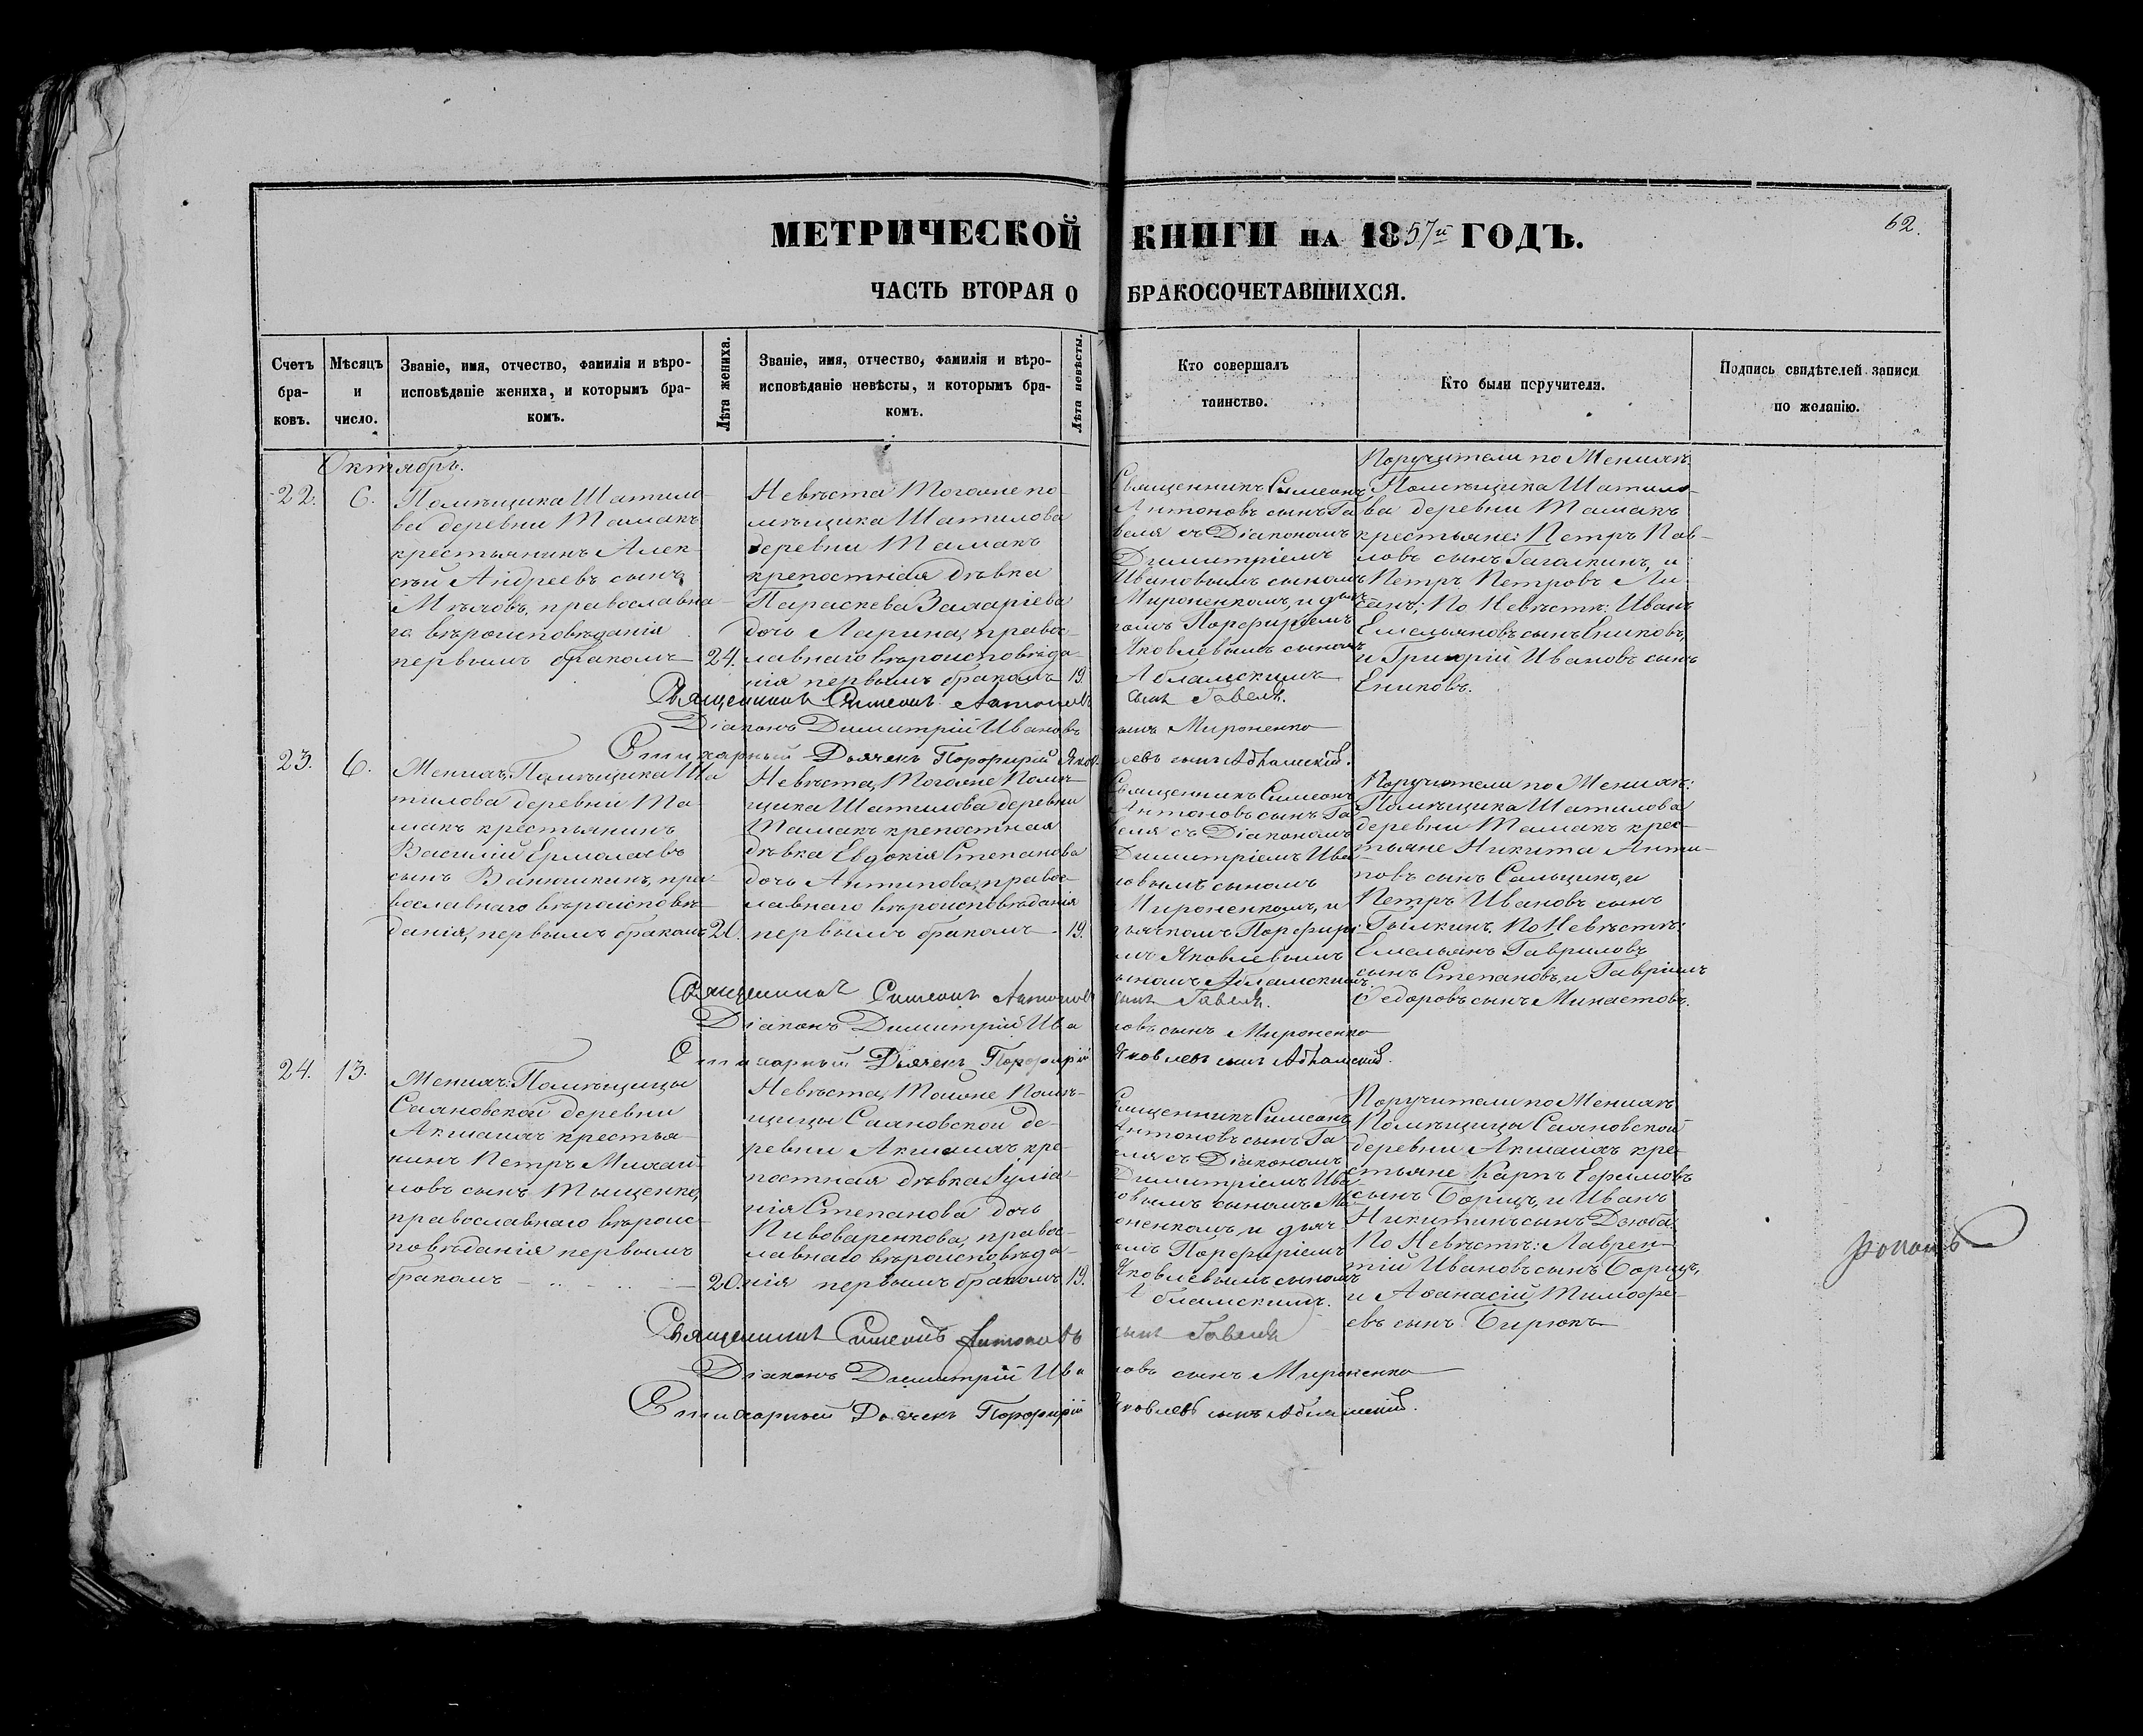 МЕТРИЧЕСКОЙ КНИГИ НА 1857й ГОДЪ.
62.
ЧАСТЬ ВТОРАЯ О БРАКОСОЧЕТАВШИХСЯ.
Счетъ
бра-
ковъ.
Мѣсяцъ
и
число.
Званіе, имя, отчество, фамилія и вѣро-
исповѣданіе жениха, и которымъ бра-
комъ.
Лѣта жениха.
Званіе, имя, отчество, фамилія и вѣро-
исповѣданіе невѣсты, и которымъ бра-
комъ.
Лѣта невѣсты.
Кто совершалъ
таинство.
Кто были поручители.
Подпись свидѣтелей записи
по желанію.
Октябрь.
22.
6.
Помѣщика Шатило-
ва деревни Тамакъ
крестьянинъ Алек-
сѣй Андреевъ сынъ
православна-
го вѣроисповѣданія
первымъ бракомъ
24.
Невѣста Тогоже по-
мѣщика Шатилова
деревни Тамакъ
крепостная дѣвка
Параскева Захаріева
дочь Ларина, правос-
лавнаго вѣроисповѣда-
нія первымъ бракомъ
19.
Священникъ Симеонъ
Антоновъ сынъ Га
веля съ Діакономъ
Димитріемъ
Ивановымъ сыномъ
Мироненкомъ, и дьяч
комъ Порфиріемъ
Яковлевымъ сыномъ
Абламскимъ
Поручители по Женихѣ
Помѣщика Шатило-
ва деревни Тамакъ
крестьяне: Петръ Пав-
ловъ сынъ Гагалкинъ, и
Петръ Петровъ
По Невѣстѣ: Иванъ
Емельяновъ сынъ Ениковъ,
и Григорій Ивановъ сынъ
Ениковъ.
Священникъ Симеонъ Антоновъ сынъ Гавеля.
Діаконъ Димитрій Ивановъ сынъ Мироненко
Стихарный Дьячекъ Порфирій Яковлевъ сынъ Абламскій.
23.
6.
Женихъ, Помѣщика Ша
тилова деревни Та-
макъ крестьянинъ
Василій Ермолаевъ
сынъ Ванюшкинъ, пра-
вославнаго вѣроисповѣ-
данія, первымъ бракомъ
20.
Невѣста, Тогоже Помѣ-
щика Шатилова деревни
Тамакъ крепостная
дѣвка Евдокія Степанова
дочь Антипова, правос-
лавнаго вѣроисповѣданія
первымъ бракомъ
19.
Священникъ Симеонъ
Антоновъ сынъ Га
веля съ Діакономъ
Димитріемъ Ива
новымъ сыномъ
Мироненкомъ, и
дьячкомъ Порфирі
емъ Яковлевымъ
сыномъ Абламскимъ
Поручители по Женихѣ:
Помѣщика Шатилова
деревни Тамакъ крес-
тьяне Никита Анти-
повъ сынъ Сальцинъ, и
Петръ Ивановъ сынъ
Гылкинъ. По Невѣстѣ:
Емельянъ Гавриловъ
сынъ Степановъ, и Гавріилъ
Ѳедоровъ сынъ Минаетовъ.
Священникъ Симеонъ Антоновъ сынъ Гавеля.
Діаконъ Димитрій Ивановъ сынъ Мироненко
Стихарный Дьячекъ Порфирій Яковлевъ сынъ Абламскій.
24.
13.
Женихъ: Помѣщицы
Саяновской деревни
Акшаихъ крестья-
нинъ Петръ Михай-
ловъ сынъ Тыщенко,
православнаго вѣроис-
повѣданія первымъ
бракомъ
20.
Невѣста, Тойже Помѣ-
щицы Саяновской де-
ревни Акшаихъ кре-
постная дѣвка Іулiа-
нія Степанова дочь
Пивоваренкова, правос-
лавнаго вѣроисповѣда-
нія первымъ бракомъ
19.
Священникъ Симеонъ
Антоновъ сынъ Га-
веля съ Діакономъ
Димитріемъ Ива
новымъ сыномъ Ми
роненкомъ, и дьяч
комъ Порфиріемъ
Яковлевымъ сыномъ
Абламскимъ.
Поручители по Женихѣ
Помѣщицы Саяновской
деревни Акшаихъ кре-
стьяне Карпъ Ефимовъ
сынъ Борщъ, и Иванъ
Никитинъ сынъ Дзюба.
По Невѣстѣ: Лаврен-
тій Ивановъ сынъ Борщъ,
и Аѳанасій Тимофе-
евъ сынъ Бирюкъ
Священникъ Симеонъ Антоновъ сынъ Гавеля
Діаконъ Димитрій Ивановъ сынъ Мироненко
Стихарный Дьячекъ Порфирій Яковлевъ сынъ Абламскій.